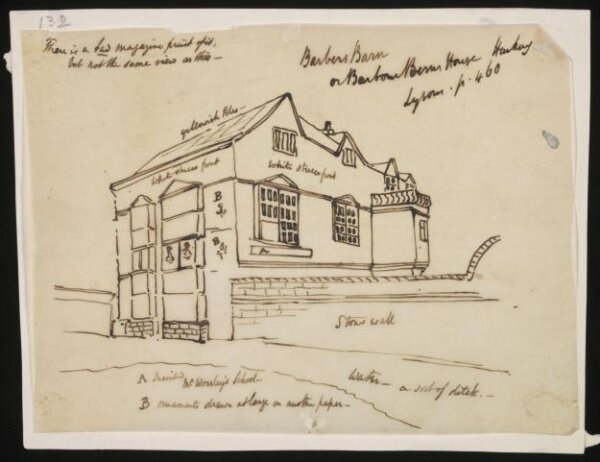 132
There is a bad magazine print of it,
but not the same view as this —
Barbers Barn
or Barbour Berns House Hackney
Lysons. p. 460
yellowish tiles —
White stucco front
White stucco front
B
B
A
Stone wall
A inscribed Mr Worsley's School —
B ornaments drawn at large on another paper —
Water — a sort of ditch —